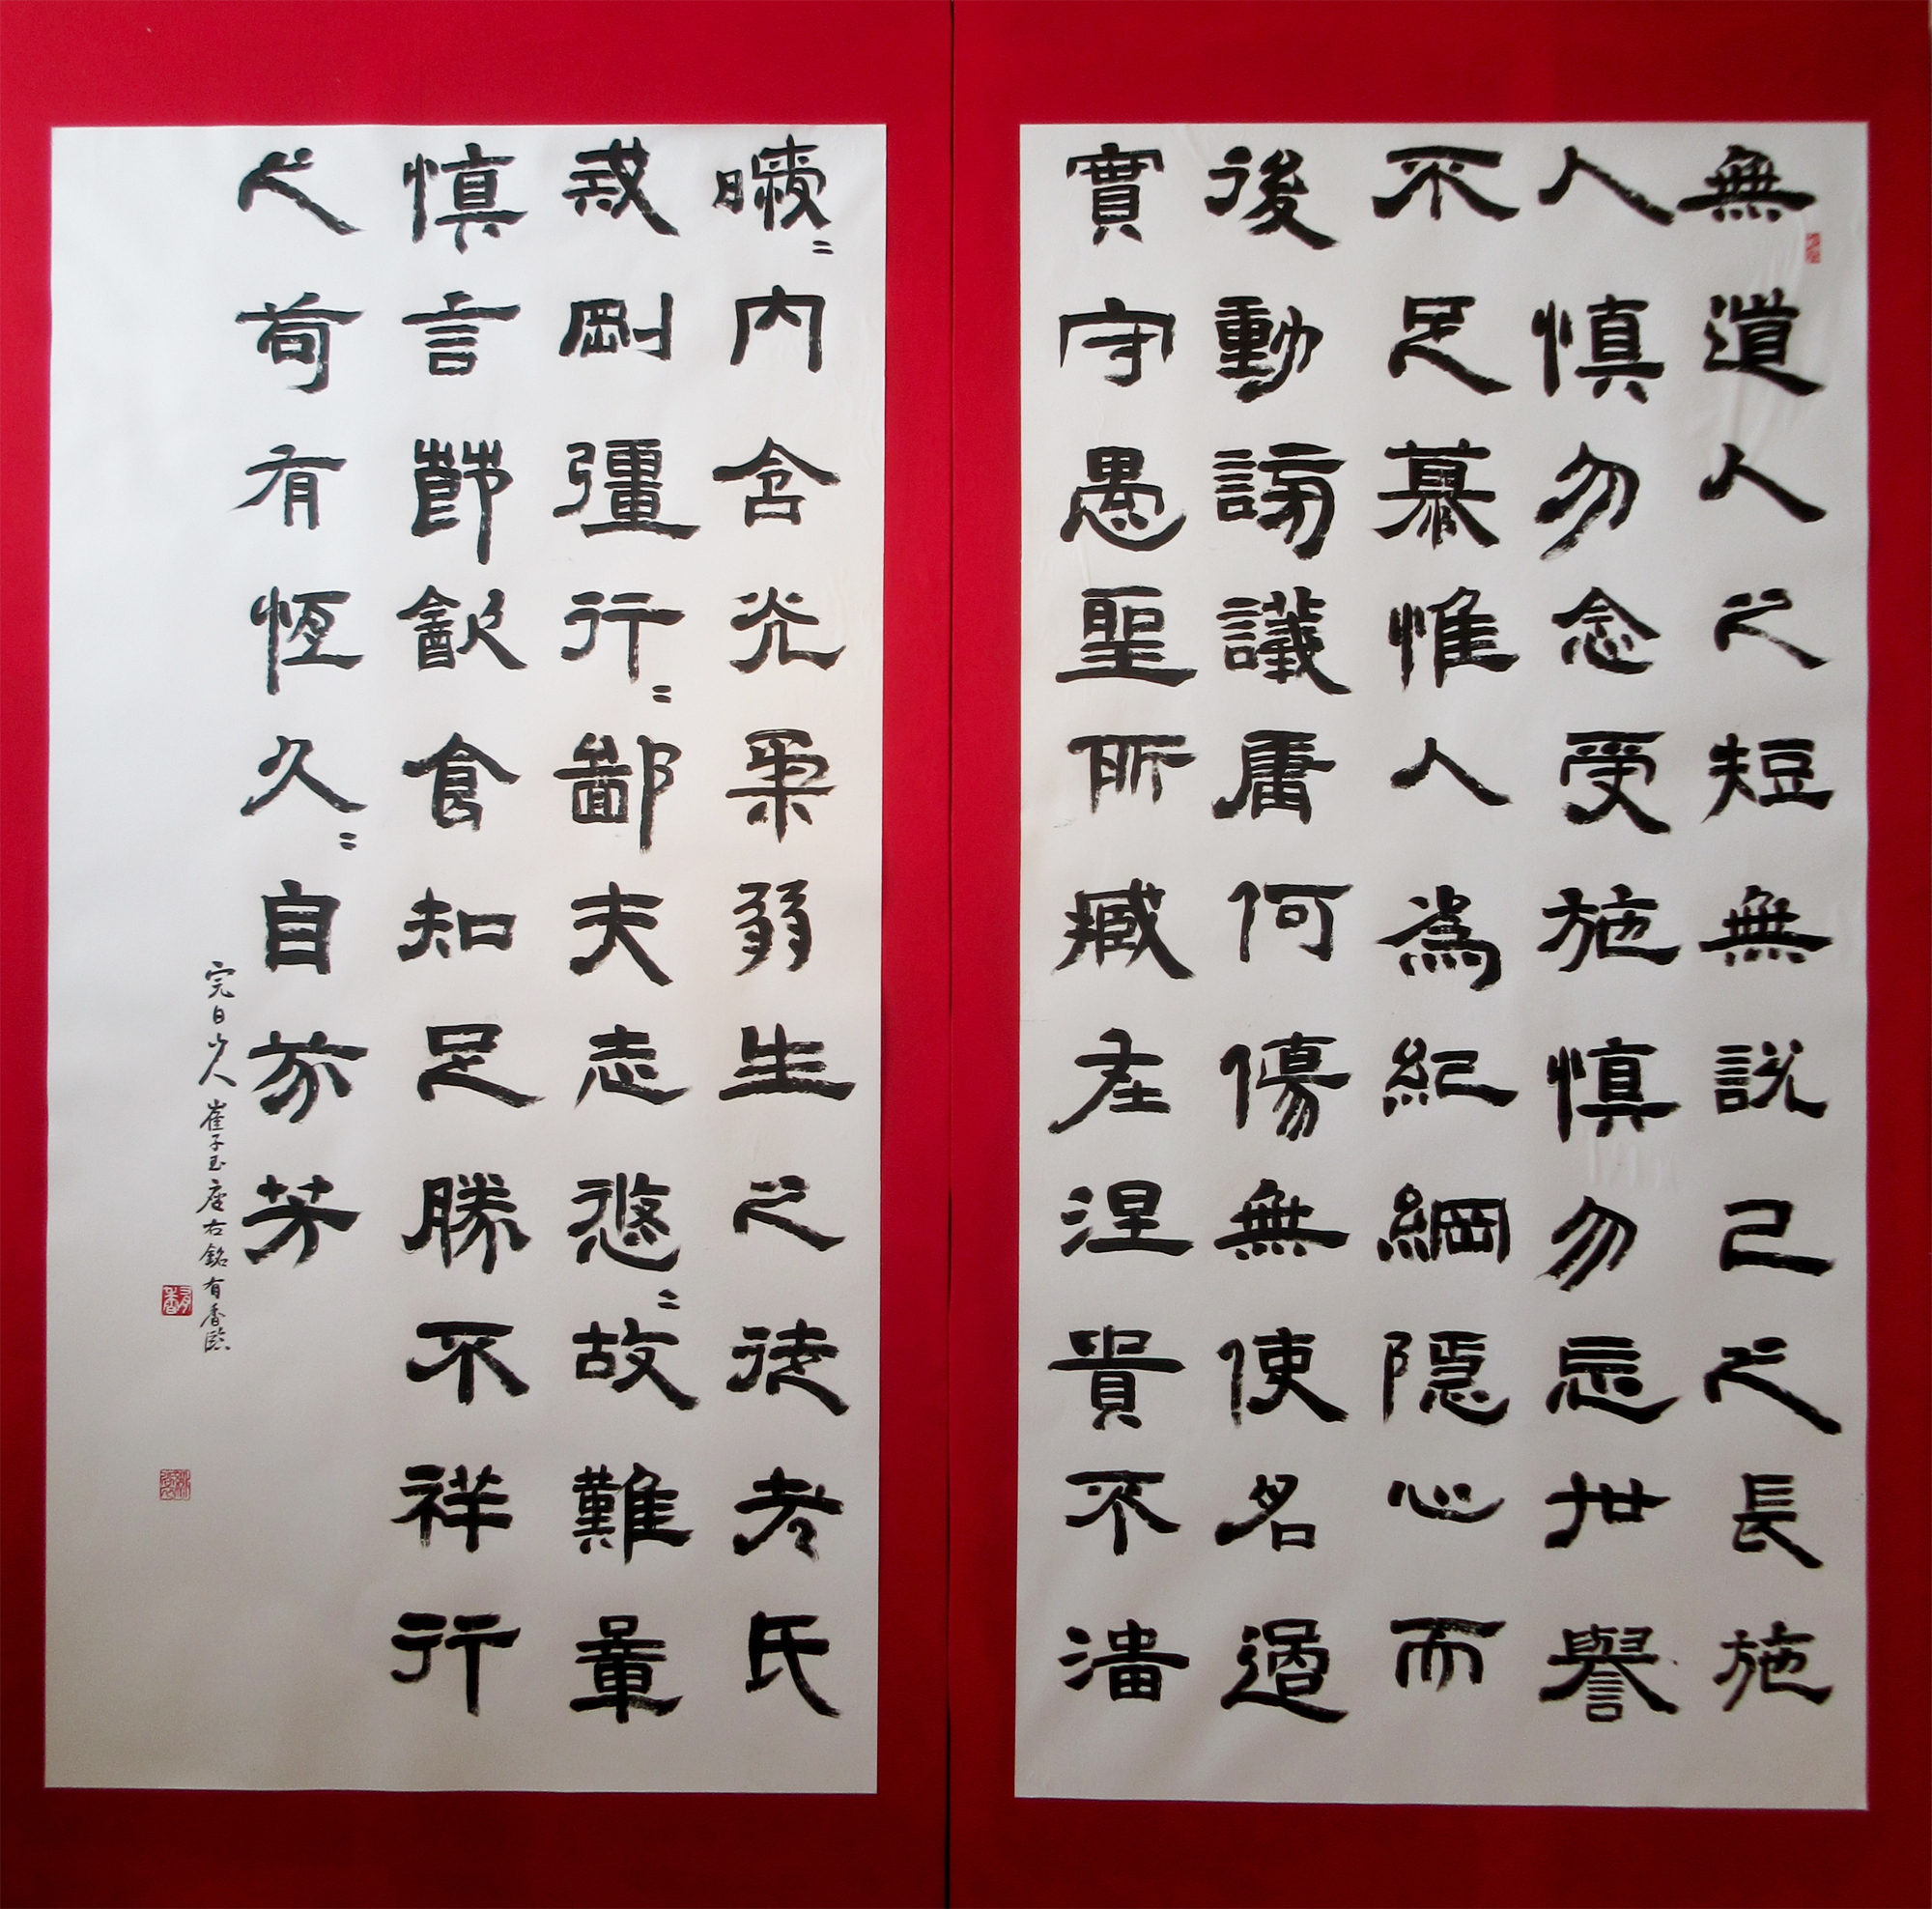 無道人之短無說己之長施
人慎勿念受施慎勿忘世譽
不足慕惟人為紀綱隱心而
後動謗議庸何傷無使名過
實守愚聖所臧在涅貴不淄
曖〻內含光柔弱生之徒老氏
戒剛彊行〻鄙夫志悠〻故難量
慎言節飲食知足勝不祥行
之苟有恆久〻自芬芳
完白山人崔子玉座右銘有香臨
有香